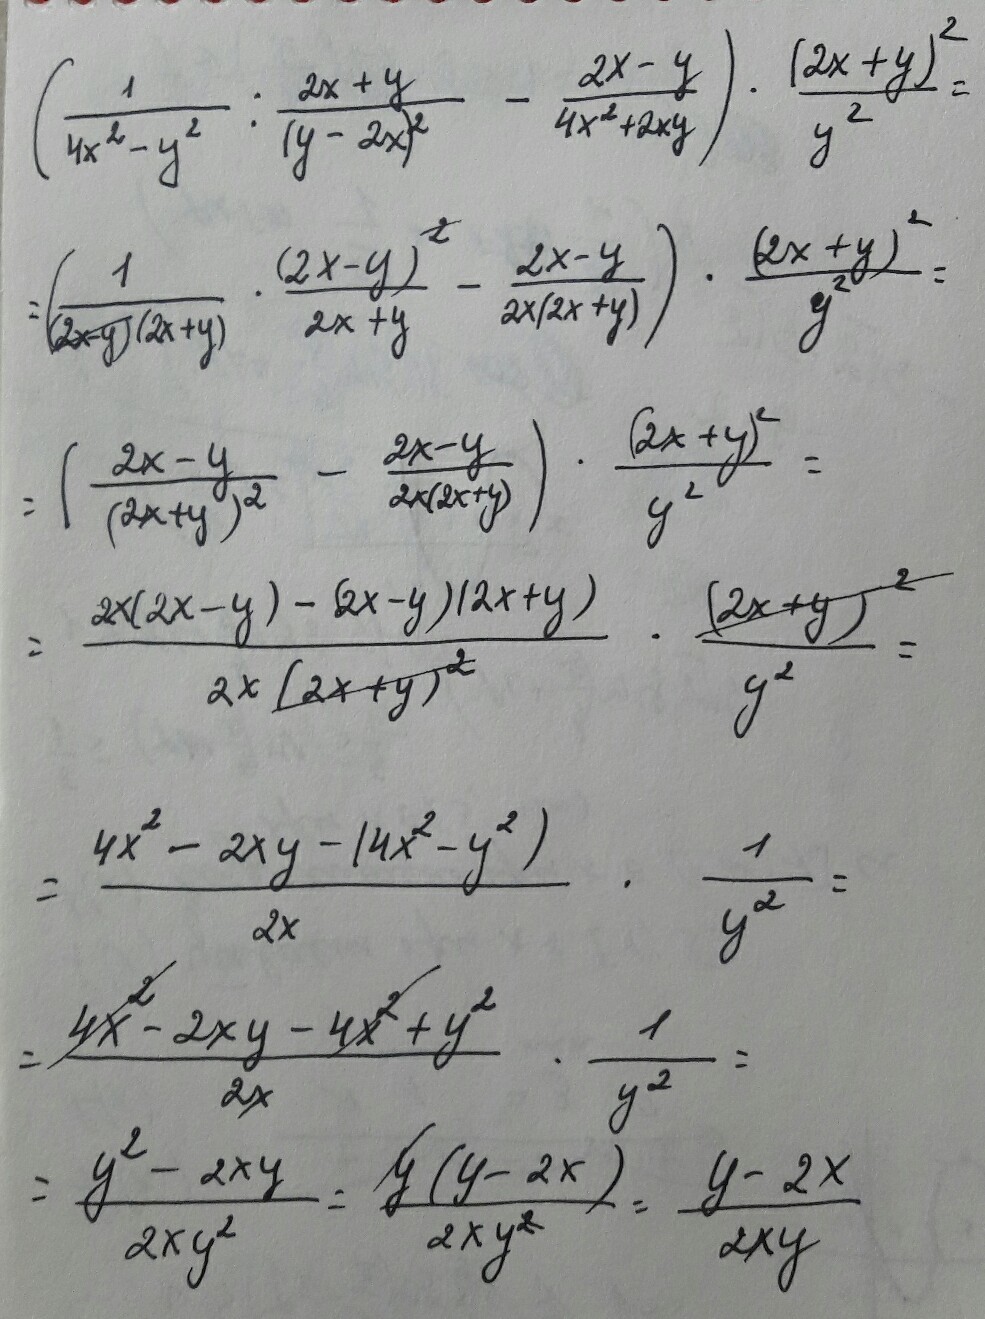 (1/(4x² - y²) : (2x + y)/(y - 2x)² - (2x - y)/(4x² + 2xy)) · (2x + y)²/y² =
= (1/((2x-y)(2x+y)) · (2x-y)²/(2x+y) - (2x-y)/(2x(2x+y))) · (2x+y)²/y² =
= ((2x - y)/(2x+y)² - (2x-y)/(2x(2x+y))) · (2x+y)²/y² =
= (2x(2x-y) - (2x-y)(2x+y))/(2x(2x+y)²) · (2x+y)²/y² =
= (4x² - 2xy - (4x² - y²))/(2x) · 1/y² =
= (4x² - 2xy - 4x² + y²)/(2x) · 1/y² =
= (y² - 2xy)/(2xy²) = (y(y - 2x))/(2xy²) = (y - 2x)/(2xy)